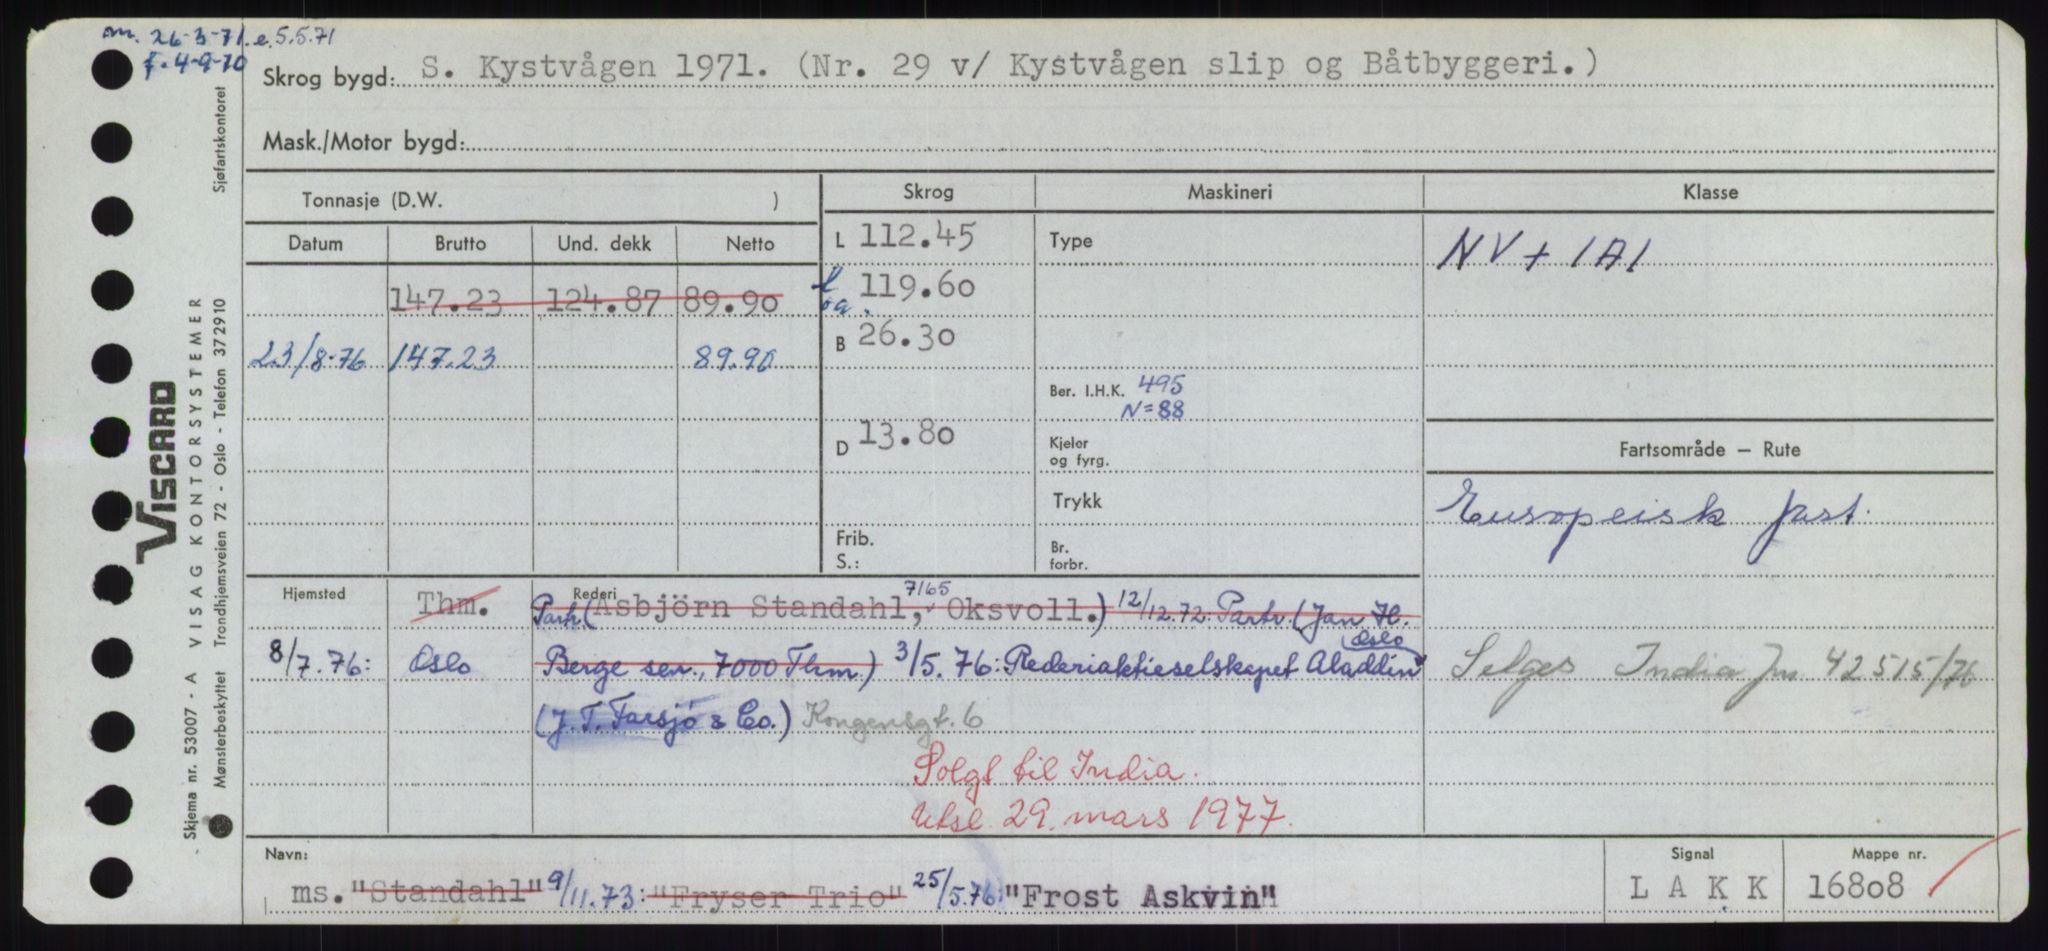 m. 26-3-71. e. 5.5.71
f. 4-9-70
Skrog bygd: S. Kystvågen 1971. (Nr. 29 v/ Kystvågen slip og Båtbyggeri.)
Mask./Motor bygd:
Tonnasje (D.W. )
Skrog Maskineri Klasse
Datum Brutto Und. dekk Netto
L 112.45 Type NV + 1A1
147.23 124.87 89.90
l oa. 119.60
23/8-76 147.23 89.90
B 26.30
Ber. I.H.K. 495
N=88
D 13.80
Kjeler og fyrg.
Fartsområde — Rute
Trykk
Europeisk fart.
Frib.
S.:
Br. forbr.
Hjemsted Thm. Rederi
7165
Partr. (Asbjörn Standahl, Oksvoll.) 12/12.72. Partr. (Jan H.
Oslo
8/7.76: Oslo Berge sen., 7000 Thm.) 3/5.76: Rederiaktieselskapet Aladdin
Selges India Jn 42515/76
(J. T. Farsjö & Co.) Kongensgt. 6
Solgt til India.
Utsl. 29. mars 1977.
Navn: Signal Mappe nr.
ms. "Standahl" 9/11.73: "Fryser Trio" 25/5.76: "Frost Askvin"
LAKK 16808
VISCARD
Skjema nr. 53007 - A VISAG KONTORSYSTEMER
Mønsterbeskyttet Trondhjemsveien 72 - Oslo - Telefon 372910 Sjøfartskontoret